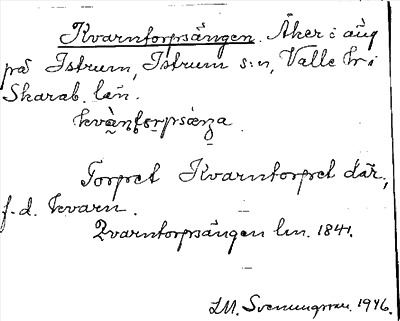 Kvarntorpsängen. Åker i äng
på Istrum, Istrum s:n, Valle hr i
Skarab. län.
kvàṇtɔrpsæŋa
Torpet Kvarntorpet där,
f.d. kvarn.
Qvarntorpsängen lm. 1841.
I.M. Svenungsson. 1946.